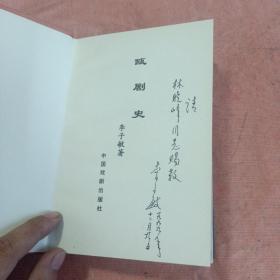 瓯剧史
李子敏著
中国戏剧出版社
请
林晓峰同志赐教
李子敏
一九九九年
十二月九日